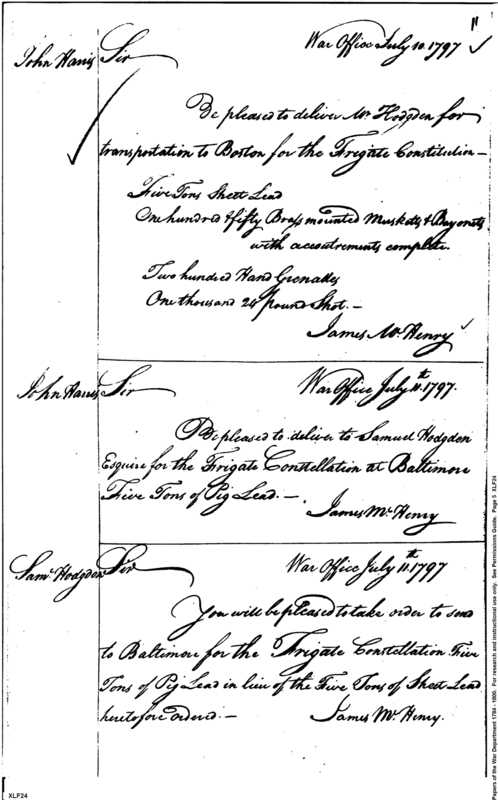 11
War Office July 10. 1797
John Harris Sir
Be pleased to deliver Mr Hodgden for
transportation to Boston for the Frigate Constitution—
Five Tons Sheet Lead
One hundred & fifty Brass mounted Musketts & Bayonets
with accoutrements complete.
Two hundred Hand Grenades
One thousand 24 pound Shot.—
James McHenry
John Harris Sir War Office July 11th. 1797.
Be pleased to deliver to Samuel Hodgden
Esquire for the Frigate Constellation at Baltimore
Five Tons of Pig Lead.—
James McHenry
Saml. Hodgden Sir War Office July 11th. 1797
You will be pleased to take order to send
to Baltimore for the Frigate Constellation Five
Tons of Pig Lead in lieu of the Five Tons of Sheet Lead
heretofore ordered.— James McHenry.
XLF24
Papers of the War Department 1784 - 1800. For research and instructional use only. See Permissions Guide. Page 5 XLF24